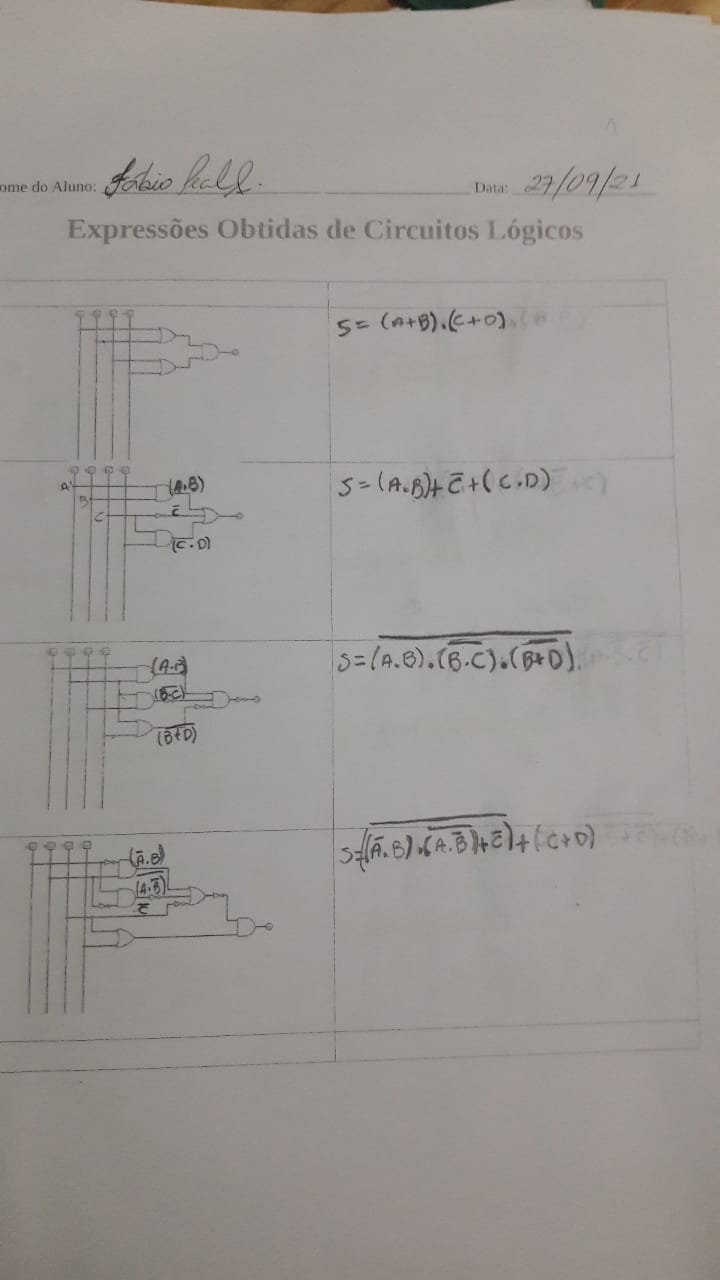 ome do Aluno: Fábio Data: 27/09/21
Expressões Obtidas de Circuitos Lógicos
S= (A+B).(C+D)
A
B
C
(A.B)
C̅
(C.D)
S=(A.B)+C̅+(C.D)
(A.B)
(B̅.̅C̅)
(B̅+̅D̅)
S=\overline{(A.B).(\overline{B.C}).(\overline{B+D})}.
(A̅.B)
(\overline{A.B̅})
C̅
S=\overline{(A̅.B).(\overline{A.B̅})+C̅)}+(C+D)